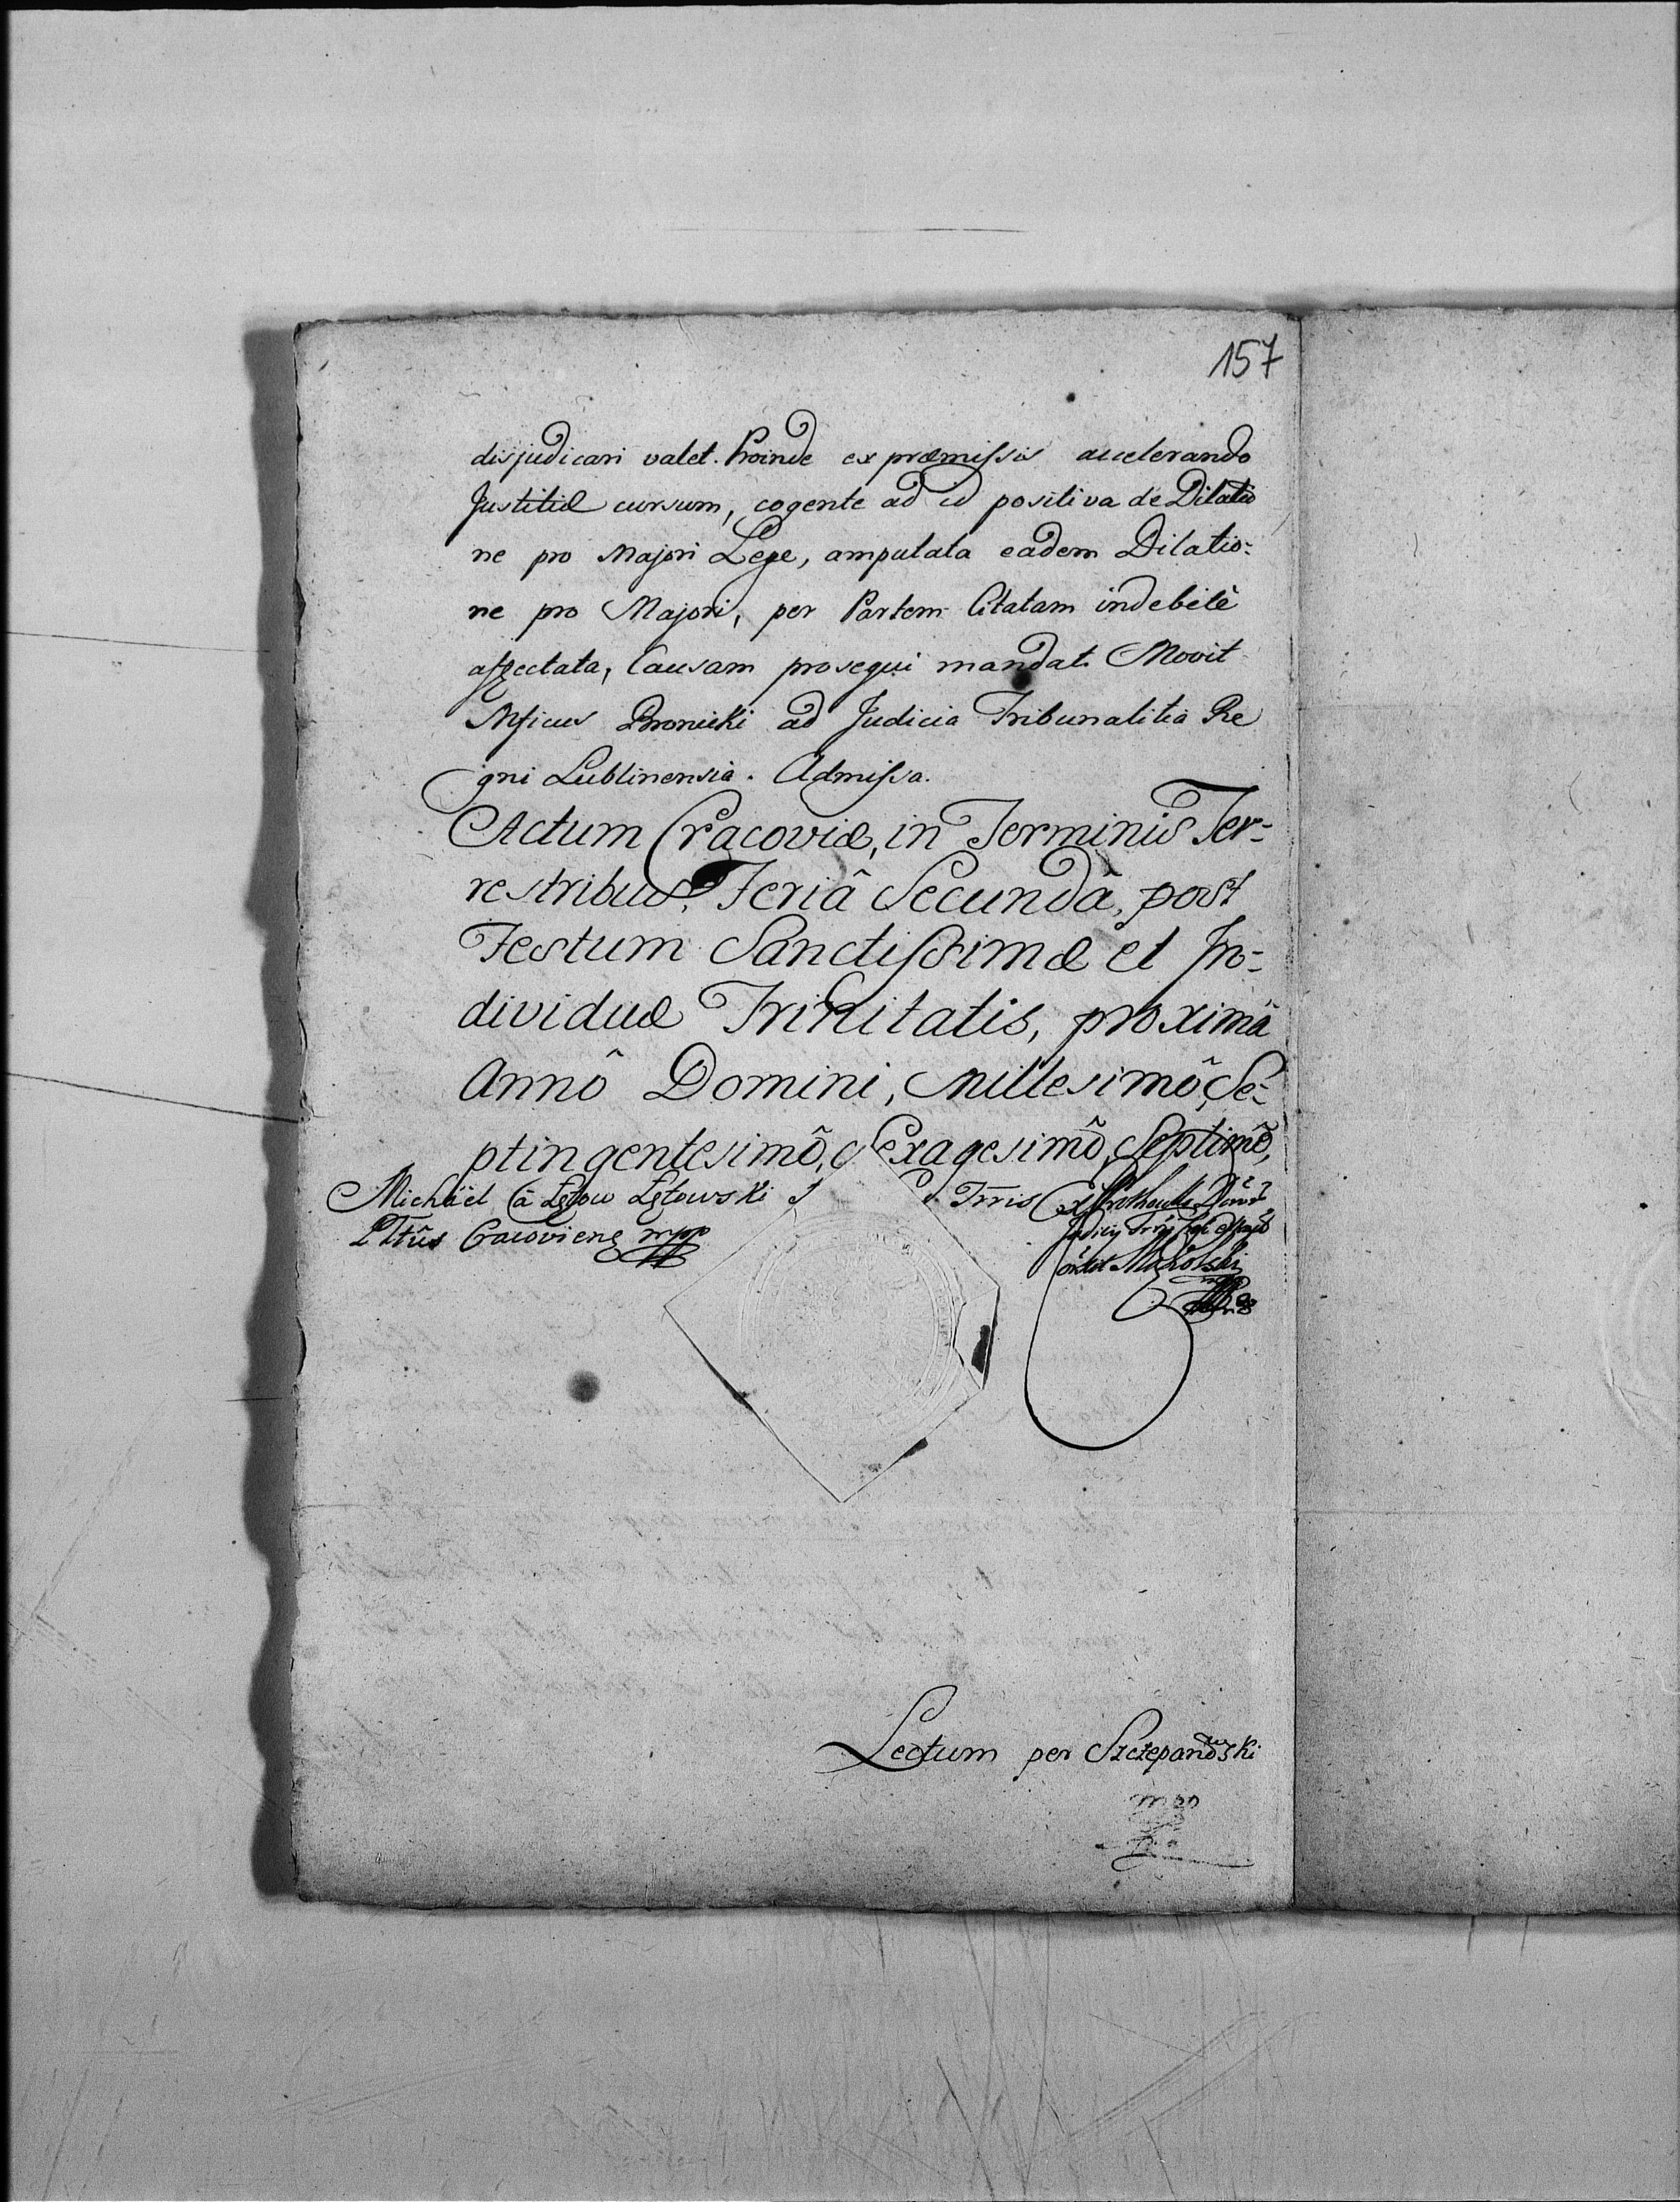 157
disjudicari valet. Proinde ex præmissis accelerando
Justitiæ cursum, cogente ad id positiva de Dilatio
ne pro Majori Lege, amputata eadem Dilatio:
ne pro Majori, per Partem Citatam indebitè
affectata, Causam prosequi mandat. Movit
Mficus Bronicki ad Judicia Tribunalitia Re
gni Lublinensia. Admissa.
Actum Cracoviæ, in Terminis Ter-
restribus, Feriâ Secundâ, post
Festum Sanctissimæ et In-
dividuæ Trinitatis, proximâ
Annô Domini, Millesimô, Se-
ptingentesimô, Sexagesimô, Septimô,
Michäel à Łętow Łętowski
Cracoviens mpp
Trris
Ex
Lectum per Szczepanowski
mpp